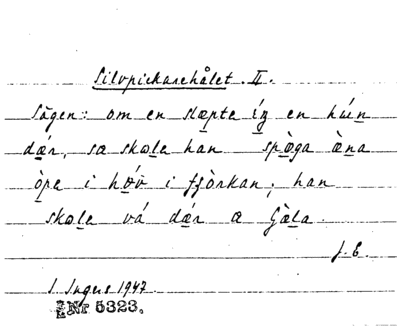 Silvpickarehålet. II.
Sägen: om en slæpte íg en hún
dǽr, sæ skole han spøga æna
òpe i høv i fjòrkan; han
skole vá dær a Gæla.
J. E.
S. Inges 1947.
Nr 5323.